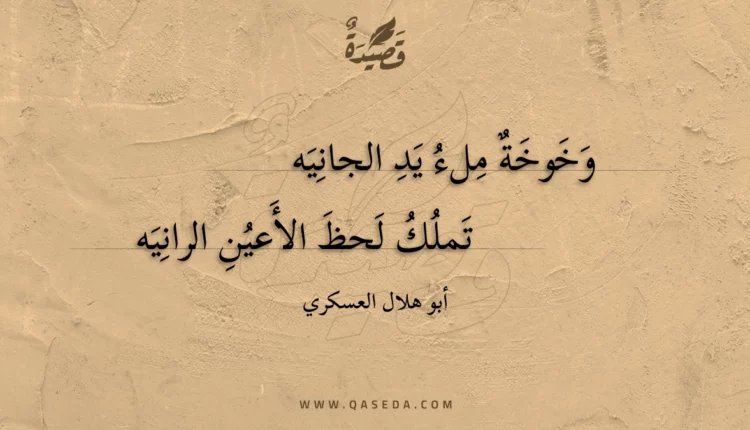 قَصِيْدَةٌ
وَخَوخَةٌ مِلءُ يَدِ الجانِيَه
تَملُكُ لَحظَ الأَعيُنِ الرانِيَه
أبو هلال العسكري
WWW.QASEDA.COM